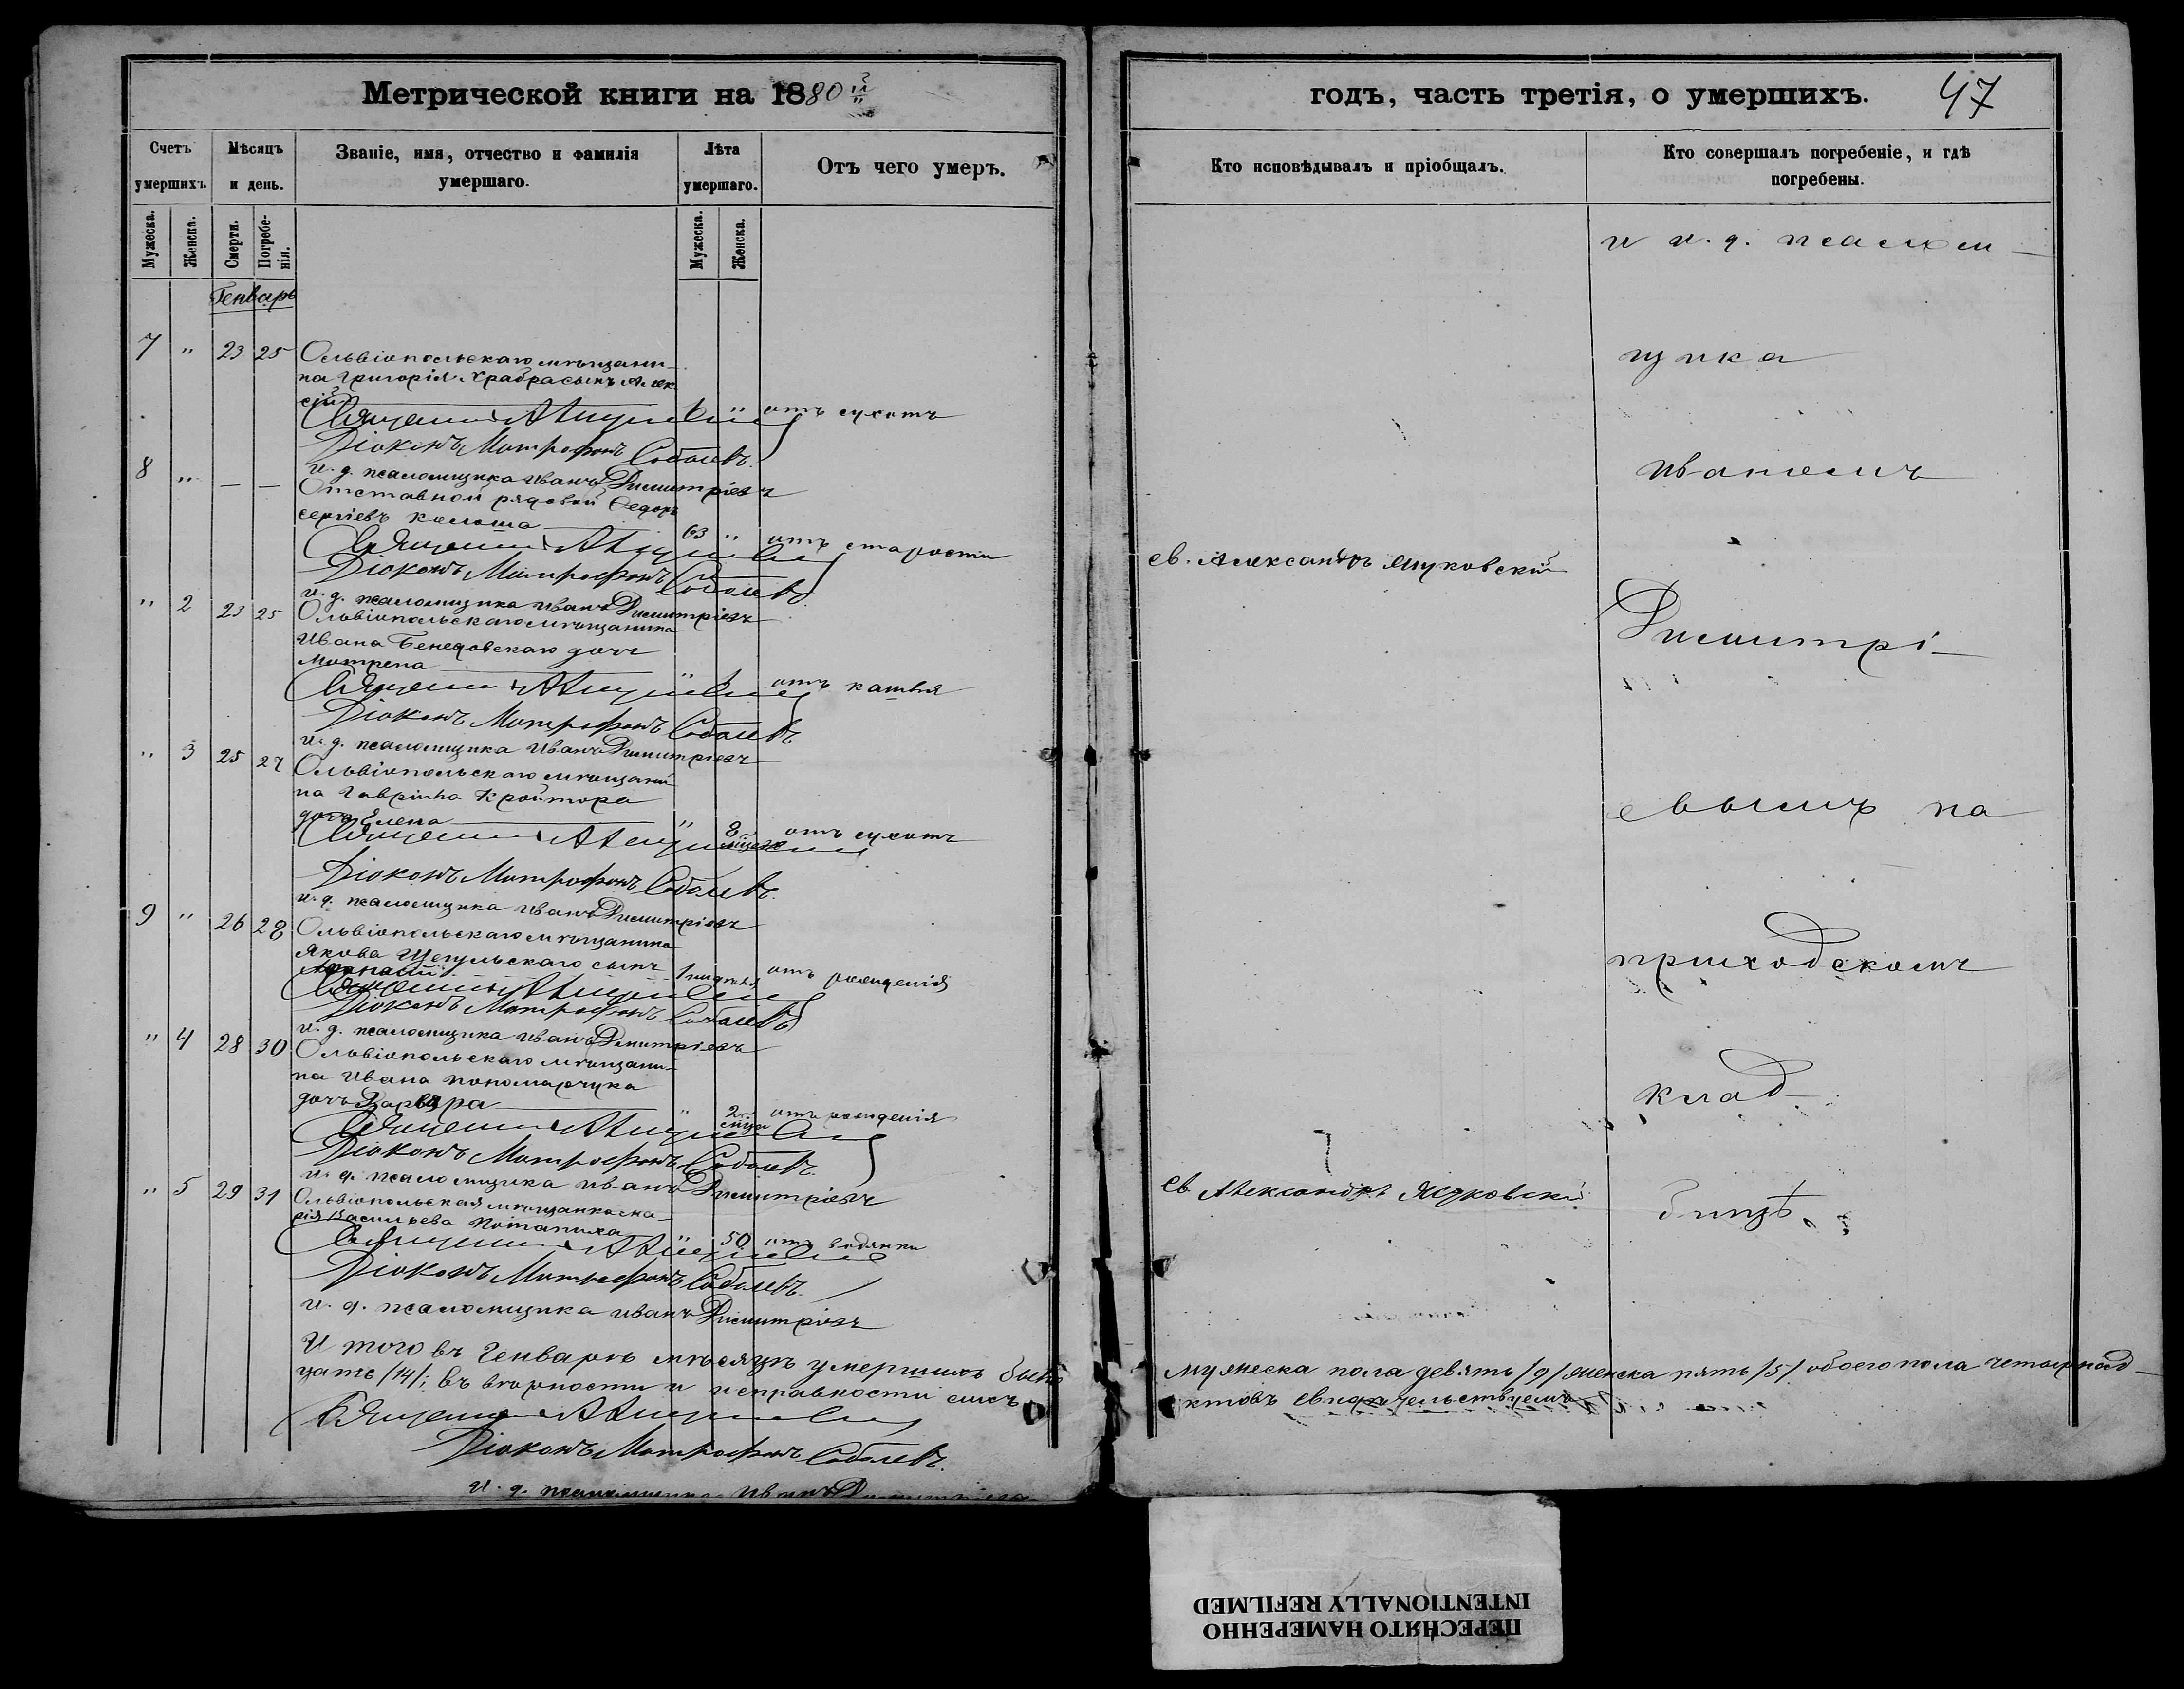 Метрической книги на 1880й
годъ, часть третія, о умершихъ.
47
Счетъ умершихъ.
Мѣсяцъ и день.
Званіе, имя, отчество и фамилія умершаго.
Лѣта умершаго.
Отъ чего умеръ.
Кто исповѣдывалъ и пріобщалъ.
Кто совершалъ погребеніе, и гдѣ погребены.
Мужеска.
Женска.
Смерти.
Погребенія.
Мужеска.
Женска.
Генварь
и и. д. псалом-
7 " 23 25 Ольвіопольскаго мѣщани-
на Григорія Храбра сынъ Алек
сій " отъ сухотъ
щика
Діаконъ Митрофанъ Соболевъ.
и. д. псаломщика Иванъ Димитріевъ
8 " — — Отставной рядовой Федоръ
Сергіевъ 63 " отъ старости
Иваномъ
св. Александръ Яцковскій
Діаконъ Митрофанъ Соболевъ.
и. д. псаломщика Иванъ Димитріевъ
" 2 23 25 Ольвіопольскаго мѣщанина
Ивана Бенедовскаго дочь
Матрена " 1 отъ кашля
Димитрі-
Діаконъ Митрофанъ Соболевъ
и. д. псаломщика Иванъ Димитріевъ
" 3 25 27 Ольвіопольскаго мѣщани
на Гавріила Кройтора
дочь Елена " 8 отъ сухотъ
евымъ на
Діаконъ Митрофанъ Соболевъ.
и. д. псаломщика Иванъ Димитріевъ
9 " 26 28 Ольвіопольскаго мѣщанина
Якова Щегульскаго сынъ
Афанасій 1 отъ рожденія
приходскомъ
Діаконъ Митрофанъ Соболевъ
и. д. псаломщика Иванъ Димитріевъ
" 4 28 30 Ольвіопольскаго мѣщани-
на Ивана Пономарчука
дочь Варвара " 2 отъ рожденія
клад-
Діаконъ Митрофанъ Соболевъ.
и. д. псаломщика Иванъ Димитріевъ
" 5 29 31 Ольвіопольская мѣщанка Ма-
рія Васильева Потапиха " 50 отъ водянки
св. Александръ Яцковскій
бищѣ.
Діаконъ Митрофанъ Соболевъ.
и. д. псаломщика Иванъ Димитріевъ
Итого въ Генварѣ мѣсяцѣ умершихъ было мужеска пола девять /9/ женска пять /5/ обоего пола четырнад-
цать /14/; въ вѣрности и исправности сихъ актовъ свидѣтельствуемъ
Діаконъ Митрофанъ Соболевъ.
и. д. псаломщика Иванъ Димитріевъ
ПЕРЕСНЯТО НАМЕРЕННО
INTENTIONALLY REFILMED